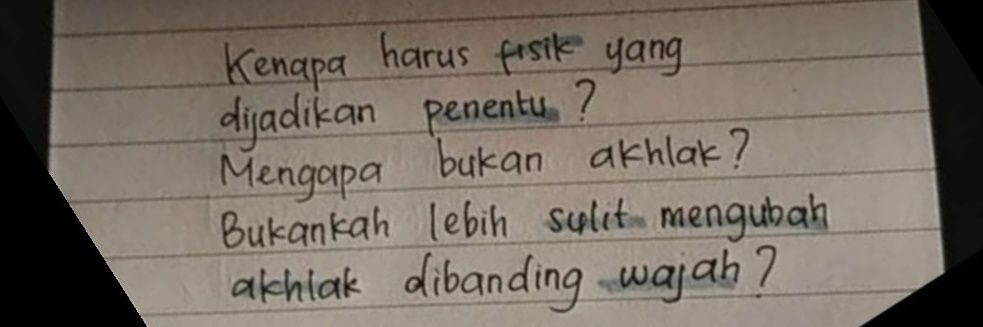 Kenapa harus fisik yang
dijadikan penentu ?
Mengapa bukan akhlak?
Bukankah lebih sulit mengubah
akhlak dibanding wajah?